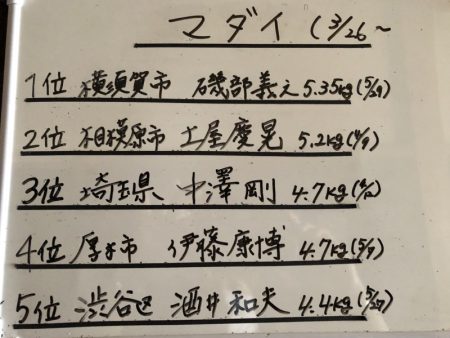 マダイ (3/26~
1位 横須賀市 磯部義之 5.35kg(5/29)
2位 相模原市 土屋慶晃 5.2kg(4/9)
3位 埼玉県 中澤剛 4.7kg
4位 厚木市 伊藤康博 4.7kg(5/9)
5位 渋谷区 酒井和夫 4.4kg